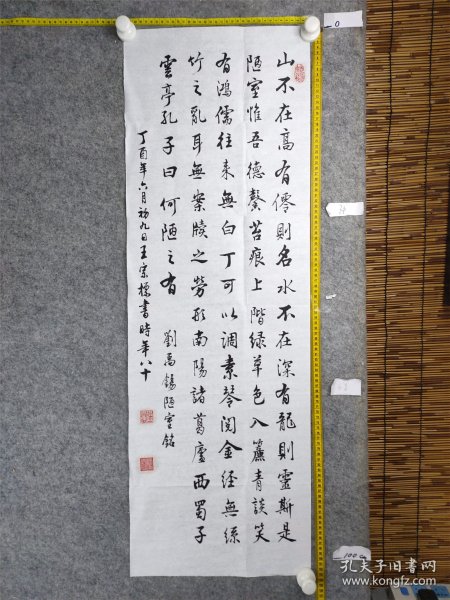 山不在高有僊則名水不在深有龍則靈斯是
陋室惟吾德馨苔痕上階緑草色入簾青談笑
有鴻儒往来無白丁可以调素琴閲金经無絲
竹之亂耳無案牘之勞形南陽諸葛廬西蜀子
雲亭孔子曰何陋之有
劉禹錫陋室銘
丁酉年六月初九日王宗標書時年八十
0
100 cm
孔夫子旧书网
www.kongfz.com